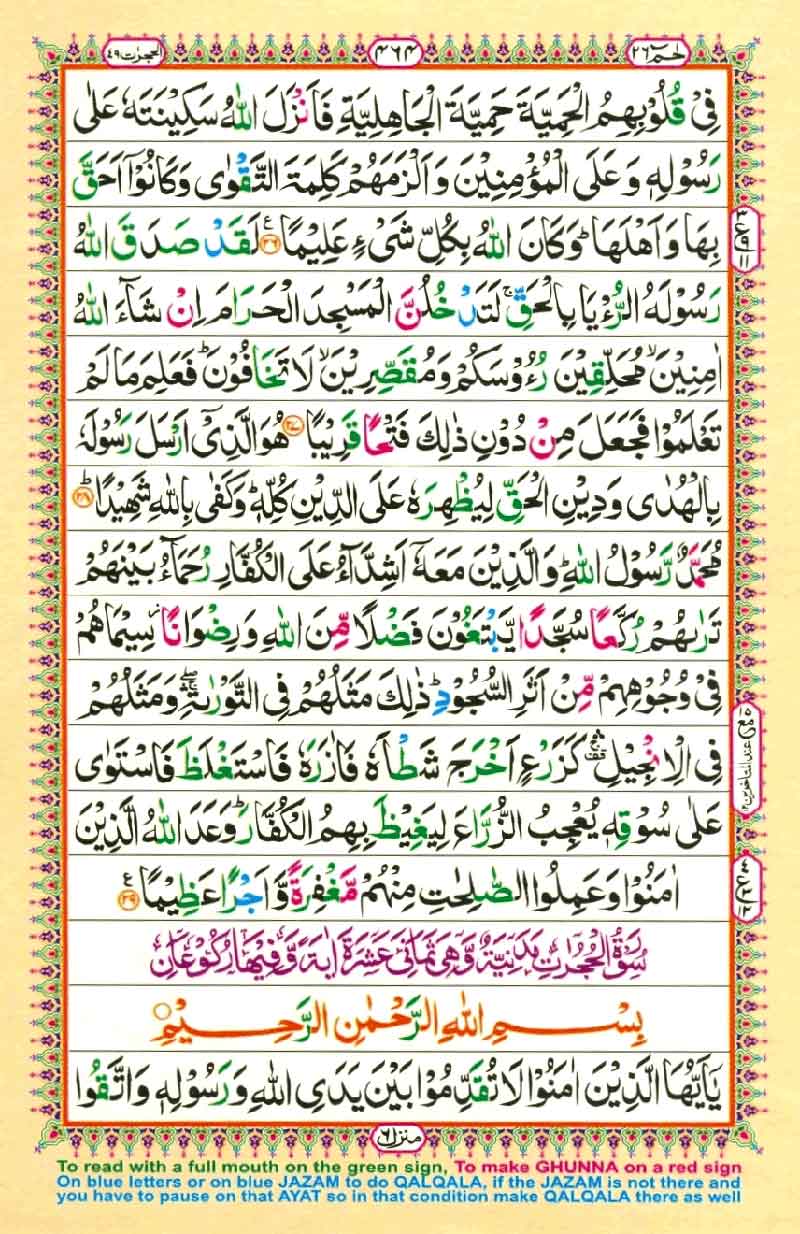 حٰمٓ ۲۶
۴۶۴
الحجرٰت ۴۹
فِیْ قُلُوْبِهِمُ الْحَمِیَّةَ حَمِیَّةَ الْجَاهِلِیَّةِ فَاَنْزَلَ اللّٰهُ سَكِیْنَتَهٗ عَلٰی
رَسُوْلِهٖ وَعَلَی الْمُؤْمِنِیْنَ وَاَلْزَمَهُمْ كَلِمَةَ التَّقْوٰی وَكَانُوْۤا اَحَقَّ
بِهَا وَاَهْلَهَا ؕ وَكَانَ اللّٰهُ بِكُلِّ شَیْءٍ عَلِیْمًا ۲۶ ع لَقَدْ صَدَقَ اللّٰهُ
رَسُوْلَهُ الرُّءْیَا بِالْحَقِّ ۚ لَتَدْخُلُنَّ الْمَسْجِدَ الْحَرَامَ اِنْ شَآءَ اللّٰهُ
اٰمِنِیْنَ ۙ مُحَلِّقِیْنَ رُءُوْسَكُمْ وَمُقَصِّرِیْنَ ۙ لَا تَخَافُوْنَ ؕ فَعَلِمَ مَا لَمْ
تَعْلَمُوْا فَجَعَلَ مِنْ دُوْنِ ذٰلِكَ فَتْحًا قَرِیْبًا ۲۷ هُوَ الَّذِیْۤ اَرْسَلَ رَسُوْلَهٗ
بِالْهُدٰی وَدِیْنِ الْحَقِّ لِیُظْهِرَهٗ عَلَی الدِّیْنِ كُلِّهٖ ؕ وَكَفٰی بِاللّٰهِ شَهِیْدًا ؕ ۲۸
مُحَمَّدٌ رَّسُوْلُ اللّٰهِ ؕ وَالَّذِیْنَ مَعَهٗۤ اَشِدَّآءُ عَلَی الْكُفَّارِ رُحَمَآءُ بَیْنَهُمْ
تَرٰىهُمْ رُكَّعًا سُجَّدًا یَّبْتَغُوْنَ فَضْلًا مِّنَ اللّٰهِ وَرِضْوَانًا ؗ سِیْمَاهُمْ
فِیْ وُجُوْهِهِمْ مِّنْ اَثَرِ السُّجُوْدِ ؕ ذٰلِكَ مَثَلُهُمْ فِی التَّوْرٰىةِ ۛۖ وَمَثَلُهُمْ
فِی الْاِنْجِیْلِ ۛ۫ كَزَرْعٍ اَخْرَجَ شَطْاَهٗ فَاٰزَرَهٗ فَاسْتَغْلَظَ فَاسْتَوٰی
عَلٰی سُوْقِهٖ یُعْجِبُ الزُّرَّاعَ لِیَغِیْظَ بِهِمُ الْكُفَّارَ ؕ وَعَدَ اللّٰهُ الَّذِیْنَ
اٰمَنُوْا وَعَمِلُوا الصّٰلِحٰتِ مِنْهُمْ مَّغْفِرَةً وَّاَجْرًا عَظِیْمًا ۲۹ ع
سُوْرَةُ الْحُجُرٰتِ مَدَنِیَّةٌ وَّهِیَ ثَمَانِیَ عَشْرَةَ اٰیَةً وَّفِیْهَا رُكُوْعَانِ
بِسْمِ اللّٰهِ الرَّحْمٰنِ الرَّحِیْمِ
یٰۤاَیُّهَا الَّذِیْنَ اٰمَنُوْا لَا تُقَدِّمُوْا بَیْنَ یَدَیِ اللّٰهِ وَرَسُوْلِهٖ وَاتَّقُوا
منزل ۶
To read with a full mouth on the green sign, To make GHUNNA on a red sign
On blue letters or on blue JAZAM to do QALQALA, if the JAZAM is not there and
you have to pause on that AYAT so in that condition make QALQALA there as well